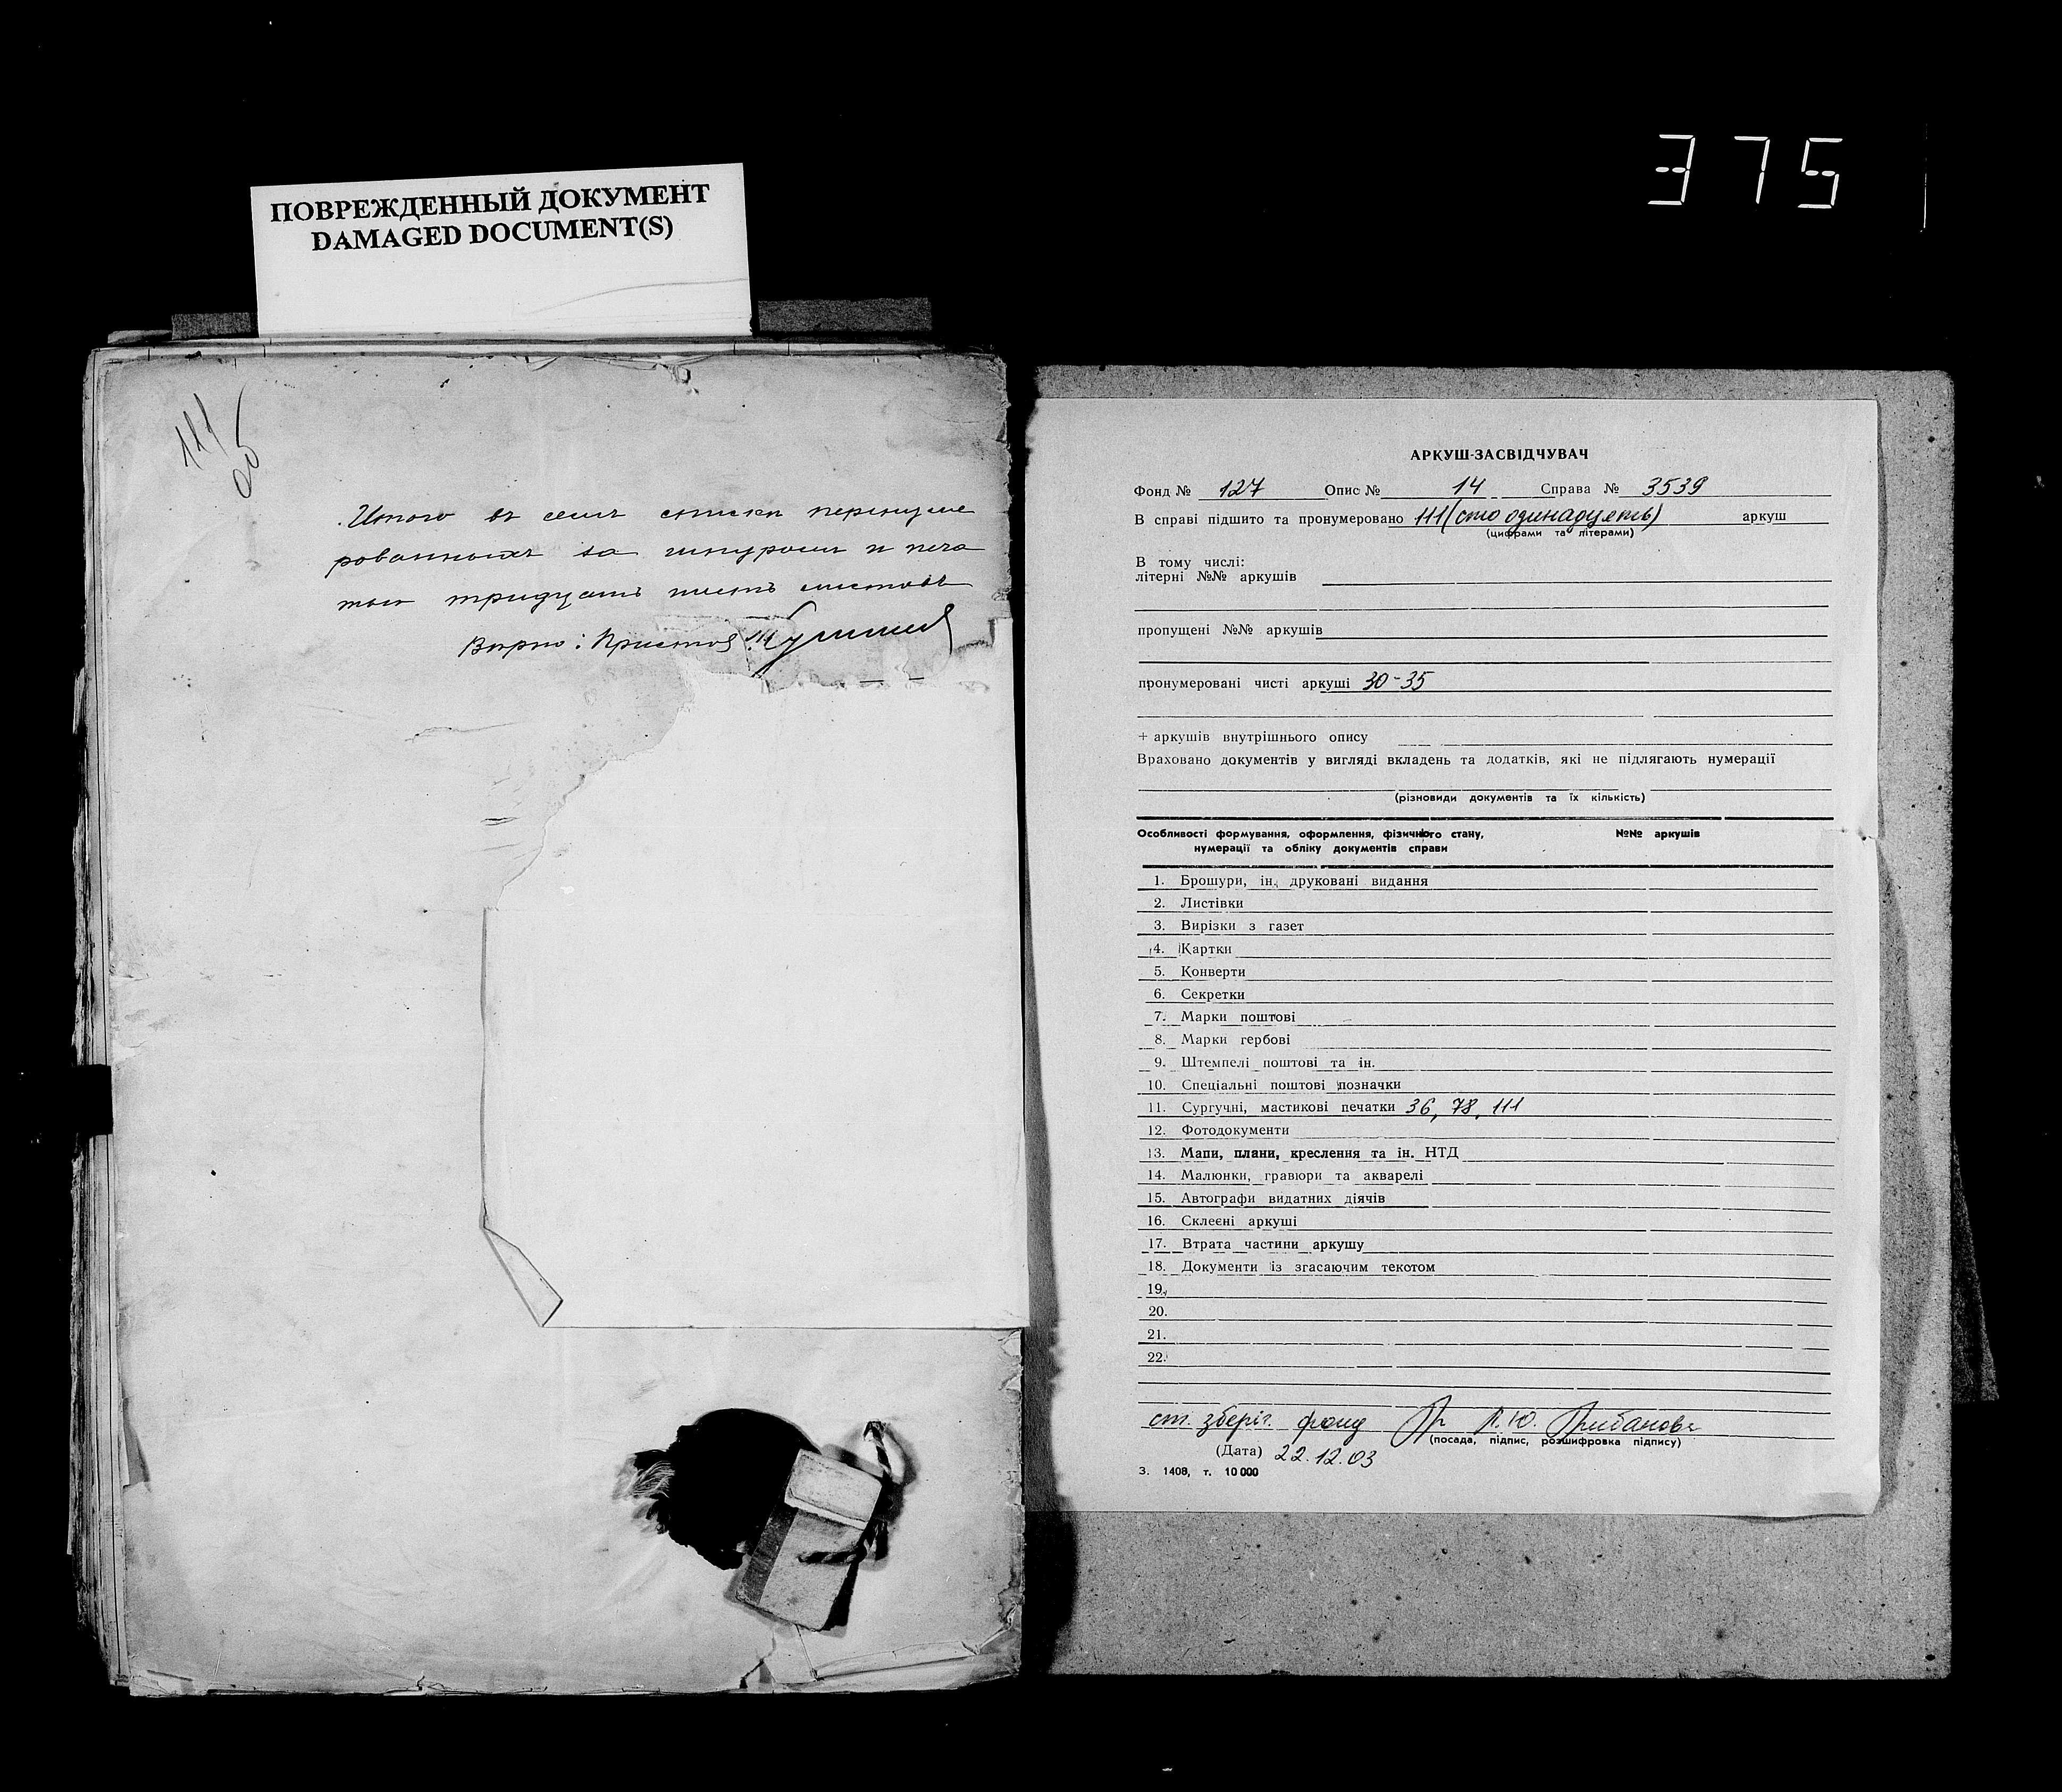 375
ПОВРЕЖДЕННЫЙ ДОКУМЕНТ
DAMAGED DOCUMENT(S)
111
об
Итого въ семъ списки перенуме
рованныхъ за шнуромъ и печа
тью тридцать шесть листовъ
Вѣрно: Приставъ
АРКУШ-ЗАСВІДЧУВАЧ
Фонд № 127 Опис № 14 Справа № 3539
В справі підшито та пронумеровано 111 (сто одинадцять) аркуш
(цифрами та літерами)
В тому числі:
літерні №№ аркушів
пропущені №№ аркушів
пронумеровані чисті аркуші 30-35
+ аркушів внутрішнього опису
Враховано документів у вигляді вкладень та додатків, які не підлягають нумерації
(різновиди документів та їх кількість)
Особливості формування, оформлення, фізичного стану, №№ аркушів
нумерації та обліку документів справи
1. Брошури, ін. друковані видання
2. Листівки
3. Вирізки з газет
4. Картки
5. Конверти
6. Секретки
7. Марки поштові
8. Марки гербові
9. Штемпелі поштові та ін.
10. Спеціальні поштові позначки
11. Сургучні, мастикові печатки 36, 78, 111
12. Фотодокументи
13. Мапи, плани, креслення та ін. НТД
14. Малюнки, гравюри та акварелі
15. Автографи видатних діячів
16. Склеєні аркуші
17. Втрата частини аркушу
18. Документи із згасаючим текстом
19.
20.
21.
22.
ст. зберіг. фонд
(посада, підпис, розшифровка підпису)
(Дата) 22.12.03
З. 1408, т. 10 000